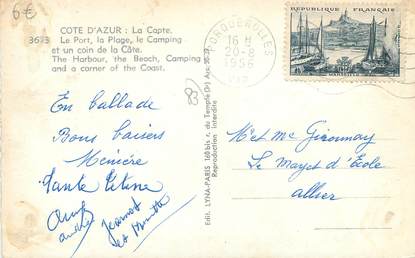 6€
COTE D'AZUR : La Capte.
3673 Le Port, la Plage, le Camping
et un coin de la Côte.
The Harbour, the Beach, Camping
and a corner of the Coast.
En ballade
Bons baisers
Tante
Jeannot
et
83
Edit. LYNA-PARIS 160 bis r. du Temple (3e) Arc. 20-27
Reproduction interdite
PORQUEROLLES
16 H
20-8
1956
VAR
REPUBLIQUE FRANÇAISE
MARSEILLE
Mr et Me Gironnay
Le Mayet d'École
Allier